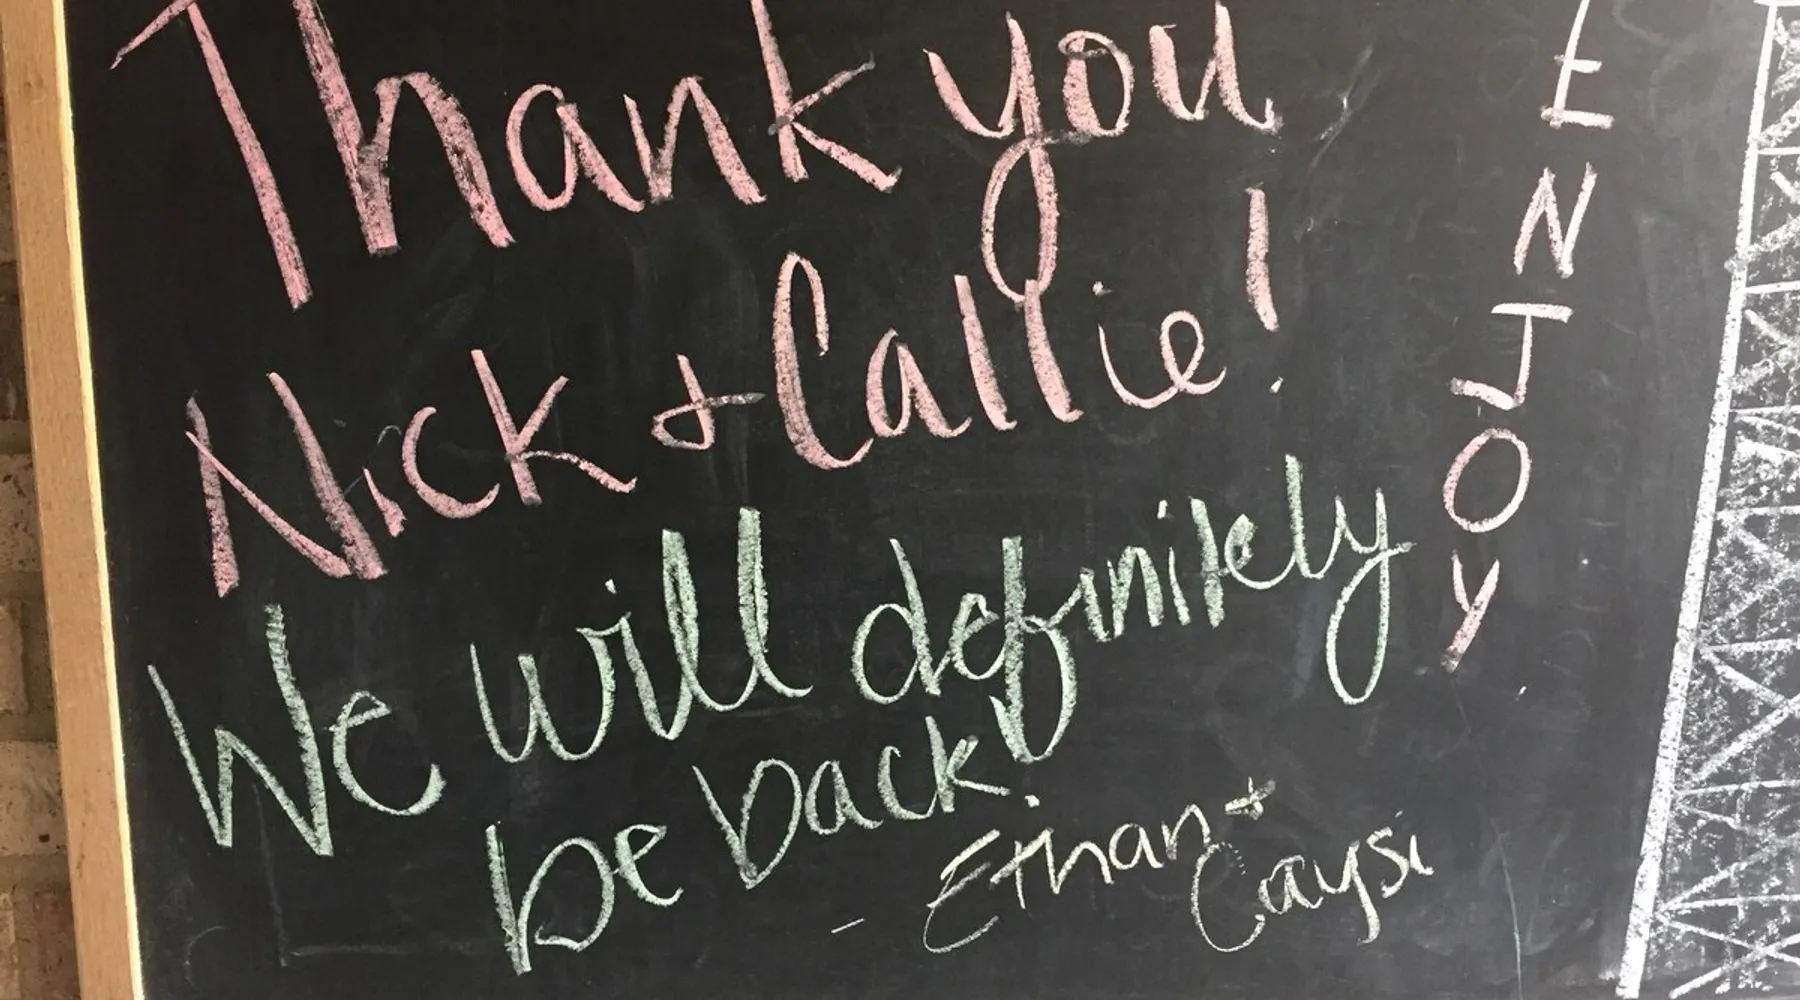 Thank you
Nick + Callie!
We will definitely
be back!
- Ethan +
Caysi
ENJOY